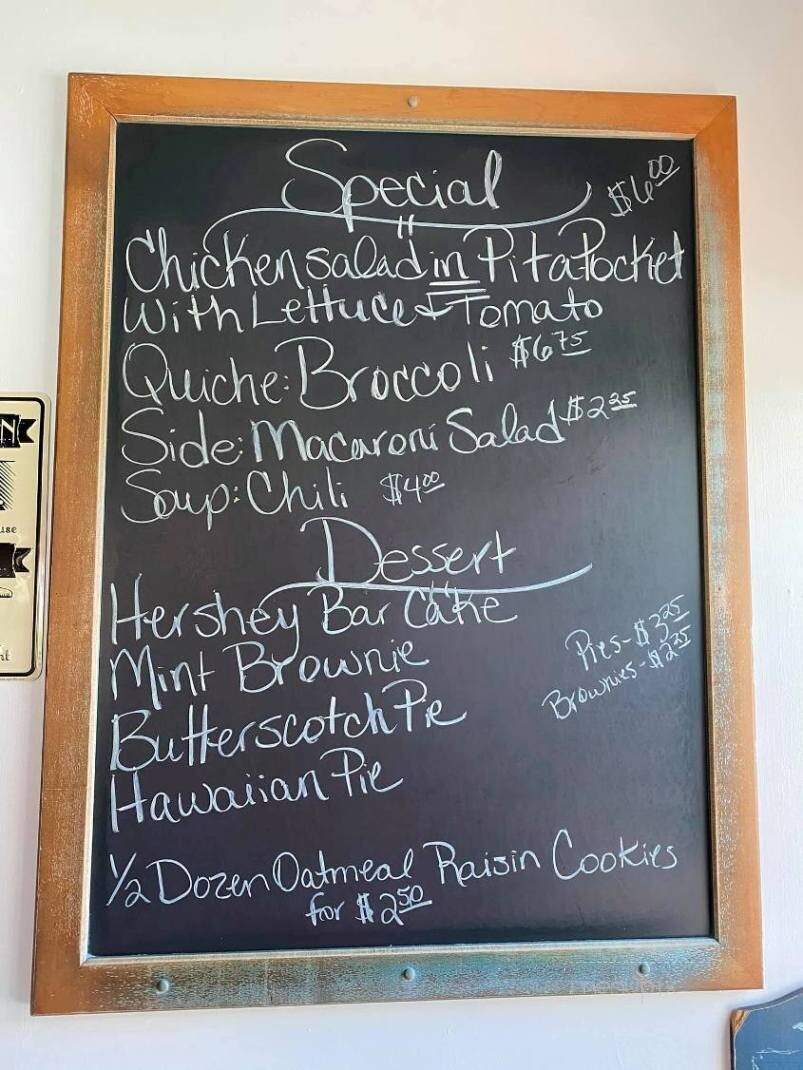 Special $6.00
Chicken salad in Pita Pocket
With Lettuce & Tomato
Quiche: Broccoli $6.75
Side: Macaroni Salad $2.25
Soup: Chili $4.00
Dessert
Hershey Bar Cake
Mint Brownie
Pies - $3.25
Butterscotch Pie
Brownies - $2.25
Hawaiian Pie
1/2 Dozen Oatmeal Raisin Cookies
for $2.50